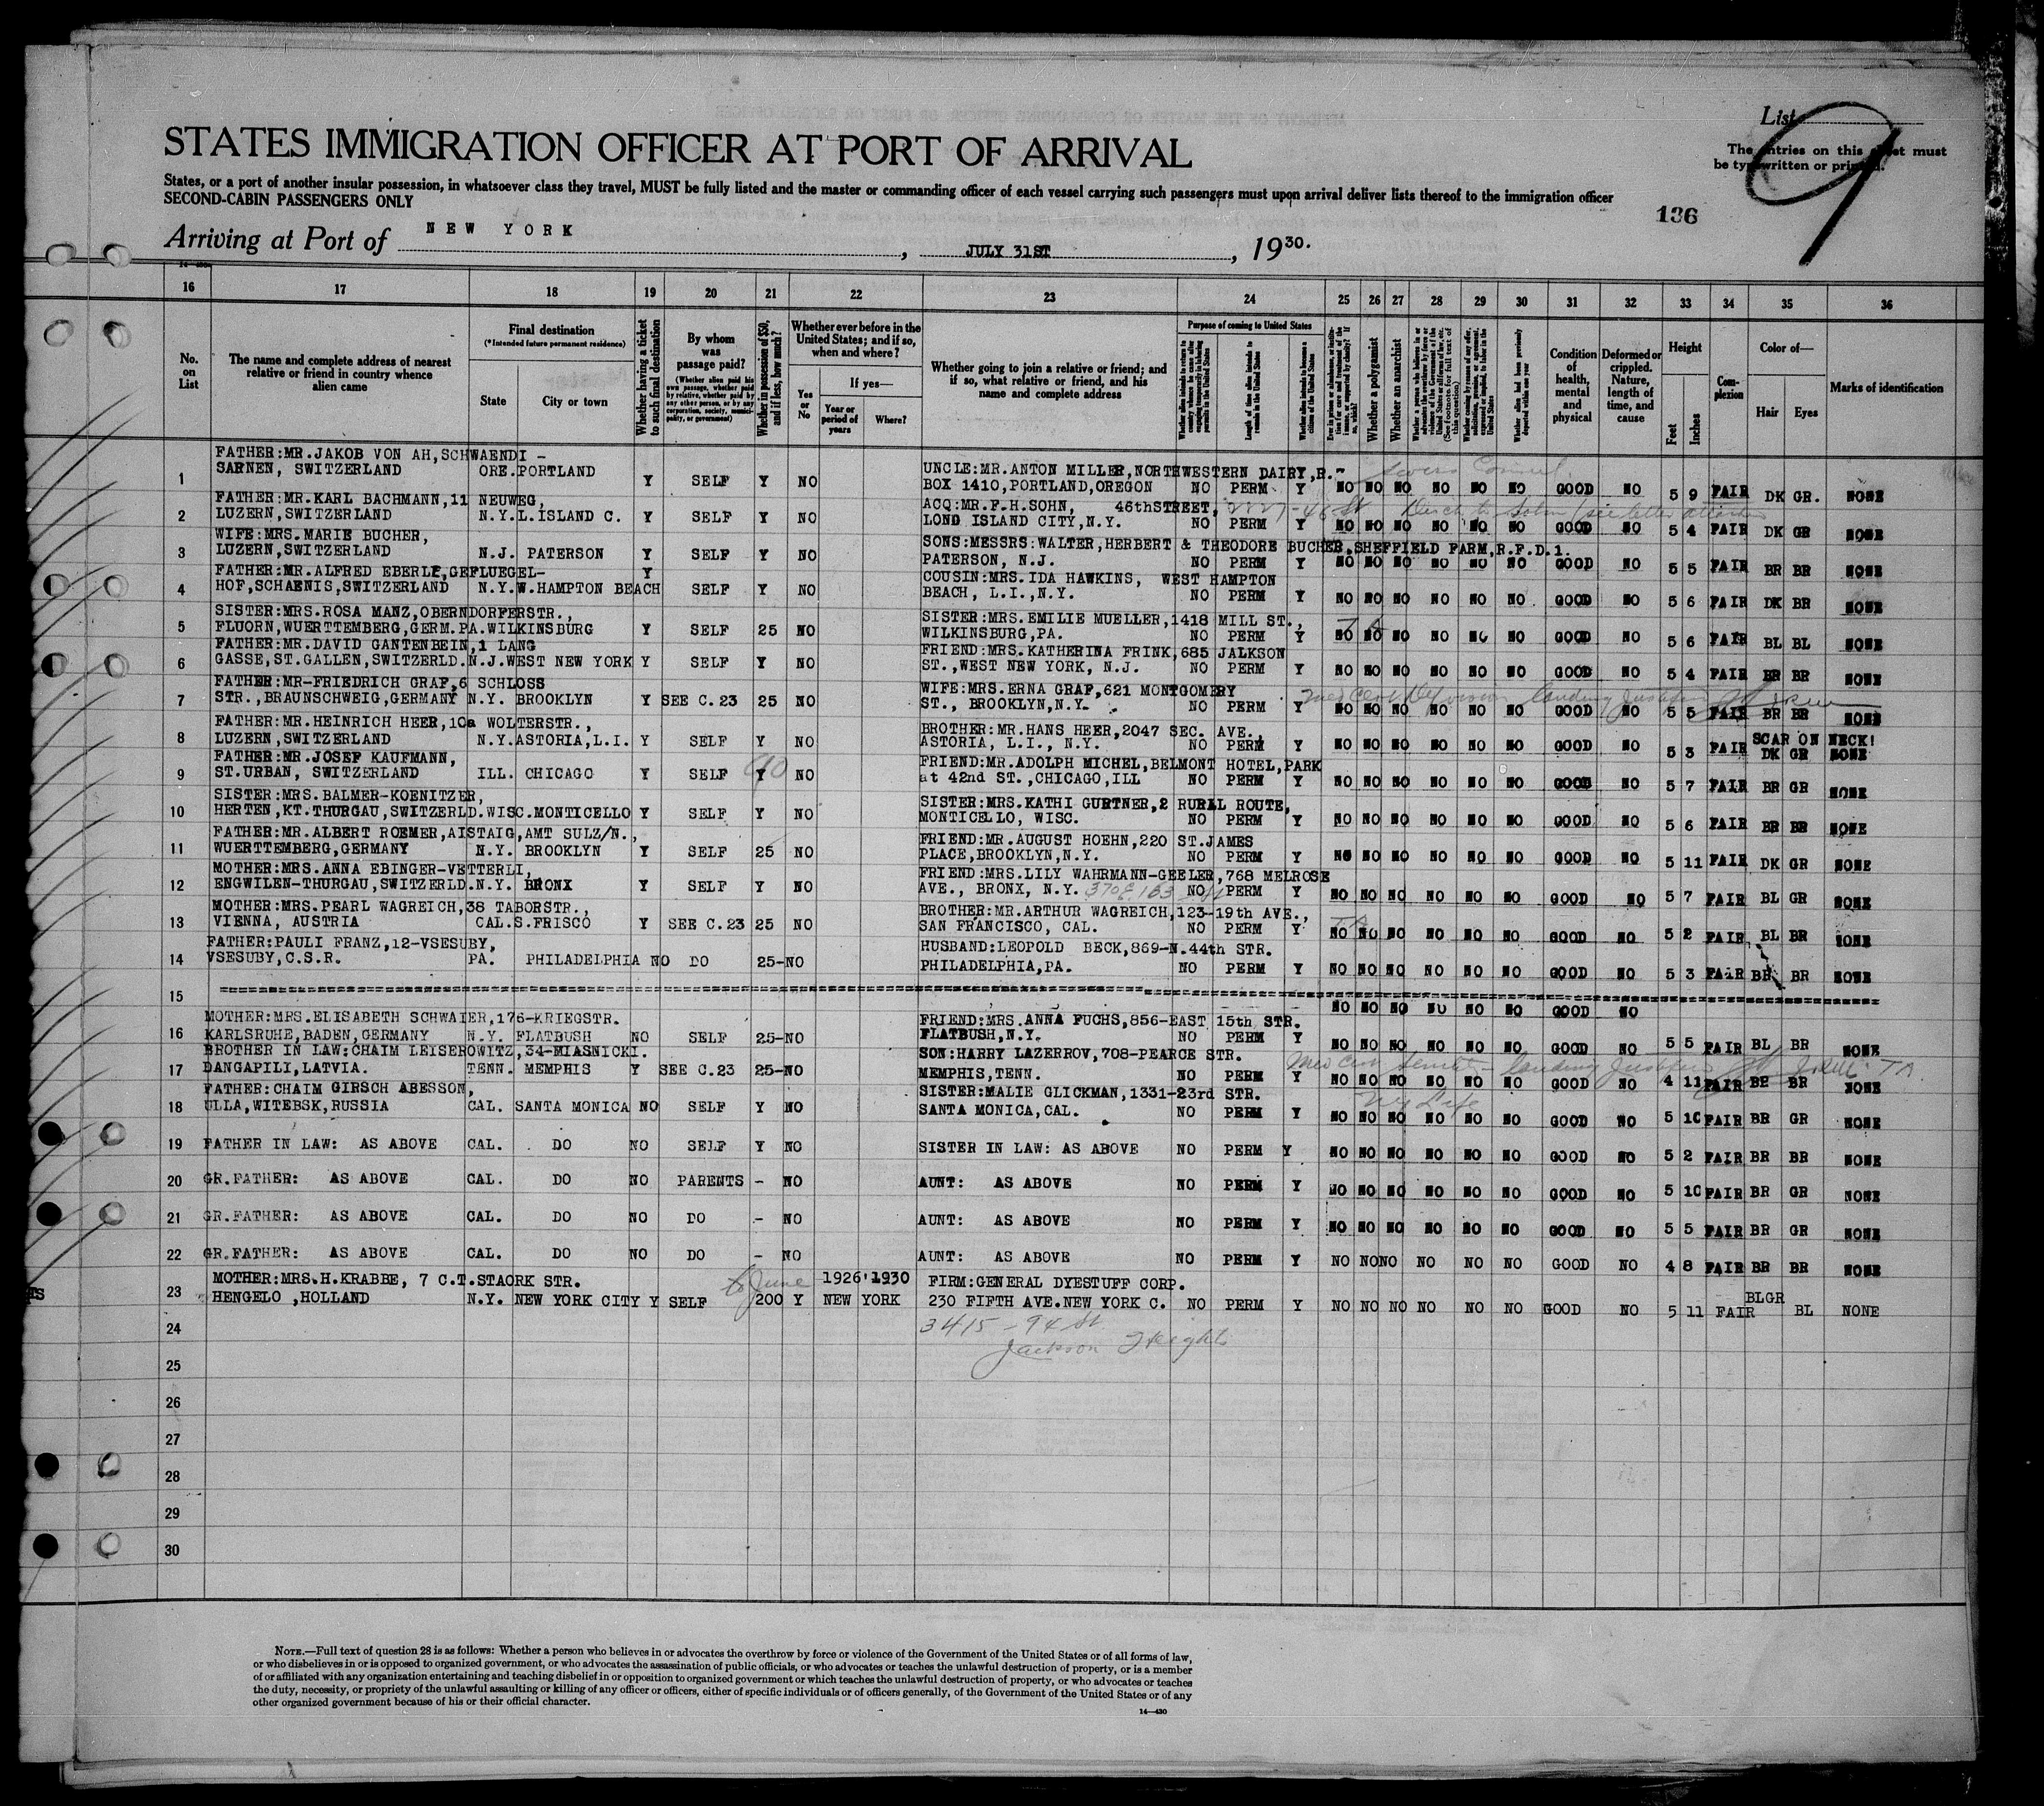 List 9
The entries on this sheet must
be typewritten or printed.
STATES IMMIGRATION OFFICER AT PORT OF ARRIVAL
States, or a port of another insular possession, in whatsoever class they travel, MUST be fully listed and the master or commanding officer of each vessel carrying such passengers must upon arrival deliver lists thereof to the immigration officer
SECOND-CABIN PASSENGERS ONLY
136
Arriving at Port of NEW YORK, JULY 31ST, 1930.
16 17 18 19 20 21 22 23 24 25 26 27 28 29 30 31 32 33 34 35 36
No. on List
The name and complete address of nearest relative or friend in country whence alien came
Final destination
(*Intended future permanent residence)
State
City or town
Whether having a ticket to such final destination
By whom was passage paid?
(Whether alien paid his own passage, whether paid by relative, whether paid by any other person, or by any corporation, society, municipality, or government)
Whether in possession of $50, and if less, how much?
Whether ever before in the United States; and if so, when and where?
Yes or No
If yes—
Year or period of years
Where?
Whether going to join a relative or friend; and if so, what relative or friend, and his name and complete address
Purpose of coming to United States
Whether alien intends to return to country whence he came after engaging temporarily in laboring pursuits in the United States
Length of time alien intends to remain in the United States
Whether alien intends to become a citizen of the United States
Whether a polygamist
Whether an anarchist
Condition of health, mental and physical
Deformed or crippled. Nature, length of time, and cause
Height
Feet
Inches
Complexion
Color of—
Hair
Eyes
Marks of identification
FATHER:MR.JAKOB VON AH,SCHWAENDI -
1 SARNEN, SWITZERLAND ORE.PORTLAND Y SELF Y NO
UNCLE:MR.ANTON MILLER,NORTHWESTERN DAIRY,R.-
BOX 1410,PORTLAND,OREGON NO PERM Y NO NO NO NO NO NO GOOD NO 5 9 FAIR DK GR. NONE
FATHER:MR.KARL BACHMANN,11 NEUWEG,
2 LUZERN,SWITZERLAND N.Y.L.ISLAND C. Y SELF Y NO
ACQ:MR.F.H.SOHN, 46thSTREET,
LOND ISLAND CITY,N.Y. NO PERM Y NO NO NO NO NO NO GOOD NO 5 4 FAIR DK GR NONE
WIFE:MRS.MARIE BUCHER,
3 LUZERN,SWITZERLAND N.J. PATERSON Y SELF Y NO
SONS:MESSRS:WALTER,HERBERT & THEODORE BUCHER,SHEFFIELD FARM,R.F.D.1.
PATERSON, N.J. NO PERM Y NO NO NO NO NO NO GOOD NO 5 5 FAIR BR BR NONE
FATHER:MR.ALFRED EBERLE,GEFLUEGEL- Y
4 HOF,SCHAENIS,SWITZERLAND N.Y.W.HAMPTON BEACH SELF Y NO
COUSIN:MRS.IDA HAWKINS, WEST HAMPTON
BEACH, L.I.,N.Y. NO PERM Y NO NO NO NO NO NO GOOD NO 5 6 FAIR DK BR NONE
SISTER:MRS.ROSA MANZ,OBERNDORFERSTR.,
5 FLUORN,WUERTTEMBERG,GERM.PA.WILKINSBURG Y SELF 25 NO
SISTER:MRS.EMILIE MUELLER,1418 MILL ST.,
WILKINSBURG,PA. NO PERM Y NO NO NO NO NO NO GOOD NO 5 6 FAIR BL BL NONE
FATHER:MR.DAVID GANTENBEIN,1 LANG
6 GASSE,ST.GALLEN,SWITZERLD.N.J.WEST NEW YORK Y SELF Y NO
FRIEND:MRS.KATHERINA FRINK,685 JALKSON
ST.,WEST NEW YORK, N.J. NO PERM Y NO NO NO NO NO NO GOOD NO 5 4 FAIR BR BR NONE
FATHER:MR-FRIEDRICH GRAF,6 SCHLOSS
7 STR.,BRAUNSCHWEIG,GERMANY N.Y. BROOKLYN Y SEE C.23 25 NO
WIFE:MRS.ERNA GRAF,621 MONTGOMERY
ST., BROOKLYN,N.Y. NO PERM Y NO NO NO NO NO NO GOOD NO 5 5 FAIR BR BR NONE
FATHER:MR.HEINRICH HEER,10a WOLTERSTR.,
8 LUZERN,SWITZERLAND N.Y.ASTORIA,L.I. Y SELF Y NO
BROTHER:MR.HANS HEER,2047 SEC. AVE.,
ASTORIA, L.I., N.Y. NO PERM Y NO NO NO NO NO NO GOOD NO 5 3 FAIR DK GR NONE
SCAR ON NECK!
FATHER:MR.JOSEF KAUFMANN,
9 ST.URBAN, SWITZERLAND ILL. CHICAGO Y SELF Y 90 NO
FRIEND:MR.ADOLPH MICHEL,BELMONT HOTEL,PARK
at 42nd ST.,CHICAGO,ILL NO PERM Y NO NO NO NO NO NO GOOD NO 5 7 FAIR BR GR NONE
SISTER:MRS.BALMER-KOENITZER,
10 HERTEN,KT.THURGAU,SWITZERLD.WISC.MONTICELLO Y SELF Y NO
SISTER:MRS.KATHI GURTNER,2 RURAL ROUTE,
MONTICELLO, WISC. NO PERM Y NO NO NO NO NO NO GOOD NO 5 6 FAIR BR BR NONE
FATHER:MR.ALBERT ROEMER,AISTAIG,AMT SULZ/N.,
11 WUERTTEMBERG,GERMANY N.Y. BROOKLYN Y SELF 25 NO
FRIEND:MR.AUGUST HOEHN,220 ST.JAMES
PLACE,BROOKLYN,N.Y. NO PERM Y NO NO NO NO NO NO GOOD NO 5 11 FAIR DK GR NONE
MOTHER:MRS.ANNA EBINGER-VETTERLI,
12 ENGWILEN-THURGAU,SWITZERLD.N.Y. BRONX Y SELF Y NO
FRIEND:MRS.LILY WAHRMANN-GEELER,768 MELROSE
AVE., BRONX, N.Y. 370 E 163 NO PERM Y NO NO NO NO NO NO GOOD NO 5 7 FAIR BL GR NONE
MOTHER:MRS.PEARL WAGREICH,38 TABORSTR.,
13 VIENNA, AUSTRIA CAL.S.FRISCO Y SEE C.23 25 NO
BROTHER:MR.ARTHUR WAGREICH,123-19th AVE.,
SAN FRANCISCO, CAL. NO PERM Y NO NO NO NO NO NO GOOD NO 5 2 FAIR BL BR NONE
FATHER:PAULI FRANZ,12-VSESUBY,
14 VSESUBY,C.S.R. PA. PHILADELPHIA NO DO 25-NO
HUSBAND:LEOPOLD BECK,869-N.44th STR.
PHILADELPHIA,PA. NO PERM Y NO NO NO NO NO NO GOOD NO 5 3 FAIR BR BR NONE
15 NO NO NO NO NO NO GOOD NO
MOTHER:MRS.ELISABETH SCHWAIER,176-KRIEGSTR.
16 KARLSRUHE,BADEN,GERMANY N.Y. FLATBUSH NO SELF 25-NO
FRIEND:MRS.ANNA FUCHS,856-EAST 15th STR.
FLATBUSH,N.Y. NO PERM Y NO NO NO NO NO NO GOOD NO 5 5 FAIR BL BR NONE
BROTHER IN LAW:CHAIM LEISEROWITZ,34-MIASNICKI.
17 DANGAPILI,LATVIA. TENN. MEMPHIS Y SEE C.23 25-NO
SON:HARRY LAZERROV,708-PEARCE STR.
MEMPHIS,TENN. NO PERM Y NO NO NO NO NO NO GOOD NO 4 11 FAIR BR BR NONE
FATHER:CHAIM GIRSCH ABESSON,
18 ULLA,WITEBSK,RUSSIA CAL. SANTA MONICA NO SELF Y NO
SISTER:MALIE GLICKMAN,1331-23rd STR.
SANTA MONICA,CAL. NO PERM Y NO NO NO NO NO NO GOOD NO 5 10 FAIR BR GR NONE
19 FATHER IN LAW: AS ABOVE CAL. DO NO SELF Y NO SISTER IN LAW: AS ABOVE NO PERM Y NO NO NO NO NO NO GOOD NO 5 2 FAIR BR BR NONE
20 GR.FATHER: AS ABOVE CAL. DO NO PARENTS - NO AUNT: AS ABOVE NO PERM Y NO NO NO NO NO NO GOOD NO 5 10 FAIR BR GR NONE
21 GR.FATHER: AS ABOVE CAL. DO NO DO - NO AUNT: AS ABOVE NO PERM Y NO NO NO NO NO NO GOOD NO 5 5 FAIR BR GR NONE
22 GR.FATHER: AS ABOVE CAL. DO NO DO - NO AUNT: AS ABOVE NO PERM Y NO NO NO NO NO NO GOOD NO 4 8 FAIR BR BR NONE
MOTHER:MRS.H.KRABBE, 7 C.T.STAORK STR. to June 1926'1930 FIRM:GENERAL DYESTUFF CORP.
23 HENGELO ,HOLLAND N.Y. NEW YORK CITY Y SELF 200 Y NEW YORK 230 FIFTH AVE.NEW YORK C. NO PERM Y NO NO NO NO NO NO GOOD NO 5 11 FAIR BLGR BL NONE
24 3415 - 94 St
Jackson Heights
25
26
27
28
29
30
NOTE.—Full text of question 28 is as follows: Whether a person who believes in or advocates the overthrow by force or violence of the Government of the United States or of all forms of law,
or who disbelieves in or is opposed to organized government, or who advocates the assassination of public officials, or who advocates or teaches the unlawful destruction of property, or is a member
of or affiliated with any organization entertaining and teaching disbelief in or opposition to organized government or which teaches the unlawful destruction of property, or who advocates or teaches
the duty, necessity, or propriety of the unlawful assaulting or killing of any officer or officers, either of specific individuals or of officers generally, of the Government of the United States or of any
other organized government because of his or their official character.
14—430